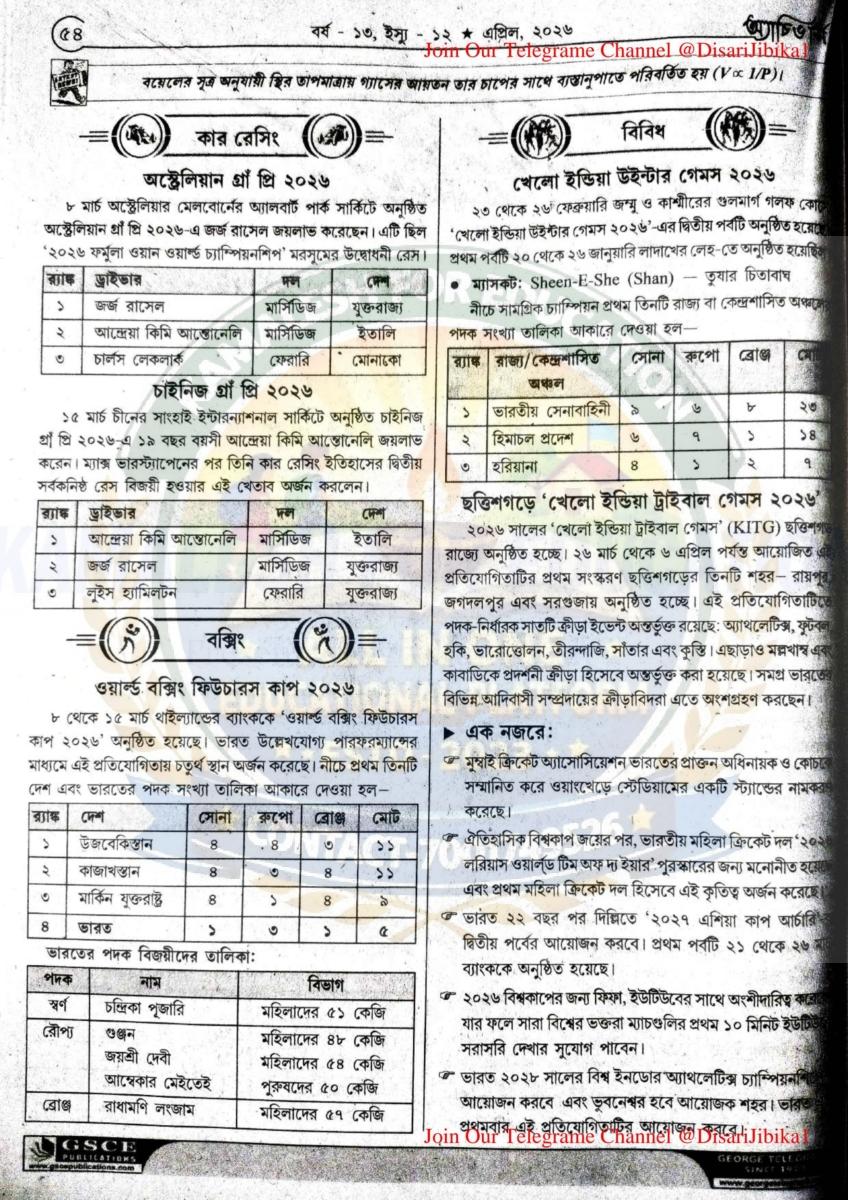 ৫৪
বর্ষ - ১৩, ইস্যু - ১২ ★ এপ্রিল, ২০২৬
Join Our Telegrame Channel @DisariJibika1
বয়েলের সূত্র অনুযায়ী স্থির তাপমাত্রায় গ্যাসের আয়তন তার চাপের সাথে ব্যস্তানুপাতে পরিবর্তিত হয় (V∝ 1/P)।
কার রেসিং
অস্ট্রেলিয়ান গ্রাঁ প্রি ২০২৬
৮ মার্চ অস্ট্রেলিয়ার মেলবোর্নের অ্যালবার্ট পার্ক সার্কিটে অনুষ্ঠিত
অস্ট্রেলিয়ান গ্রাঁ প্রি ২০২৬-এ জর্জ রাসেল জয়লাভ করেছেন। এটি ছিল
‘২০২৬ ফর্মুলা ওয়ান ওয়ার্ল্ড চ্যাম্পিয়নশিপ’ মরসুমের উদ্বোধনী রেস।
র‍্যাঙ্ক ড্রাইভার দল দেশ
১ জর্জ রাসেল মার্সিডিজ যুক্তরাজ্য
২ আন্দ্রেয়া কিমি আন্তোনেলি মার্সিডিজ ইতালি
৩ চার্লস লেকলার্ক ফেরারি মোনাকো
চাইনিজ গ্রাঁ প্রি ২০২৬
১৫ মার্চ চীনের সাংহাই ইন্টারন্যাশনাল সার্কিটে অনুষ্ঠিত চাইনিজ
গ্রাঁ প্রি ২০২৬-এ ১৯ বছর বয়সী আন্দ্রেয়া কিমি আন্তোনেলি জয়লাভ
করেন। ম্যাক্স ভারস্ট্যাপেনের পর তিনি কার রেসিং ইতিহাসের দ্বিতীয়
সর্বকনিষ্ঠ রেস বিজয়ী হওয়ার এই খেতাব অর্জন করলেন।
র‍্যাঙ্ক ড্রাইভার দল দেশ
১ আন্দ্রেয়া কিমি আন্তোনেলি মার্সিডিজ ইতালি
২ জর্জ রাসেল মার্সিডিজ যুক্তরাজ্য
৩ লুইস হ্যামিলটন ফেরারি যুক্তরাজ্য
বক্সিং
ওয়ার্ল্ড বক্সিং ফিউচারস কাপ ২০২৬
৮ থেকে ১৫ মার্চ থাইল্যান্ডের ব্যাংককে ‘ওয়ার্ল্ড বক্সিং ফিউচারস
কাপ ২০২৬’ অনুষ্ঠিত হয়েছে। ভারত উল্লেখযোগ্য পারফরম্যান্সের
মাধ্যমে এই প্রতিযোগিতায় চতুর্থ স্থান অর্জন করেছে। নীচে প্রথম তিনটি
দেশ এবং ভারতের পদক সংখ্যা তালিকা আকারে দেওয়া হল–
র‍্যাঙ্ক দেশ সোনা রুপো ব্রোঞ্জ মোট
১ উজবেকিস্তান ৪ ৪ ৩ ১১
২ কাজাখস্তান ৪ ৩ ৪ ১১
৩ মার্কিন যুক্তরাষ্ট্র ৪ ১ ৪ ৯
৪ ভারত ১ ৩ ১ ৫
ভারতের পদক বিজয়ীদের তালিকা:
পদক নাম বিভাগ
স্বর্ণ চন্দ্রিকা পূজারি মহিলাদের ৫১ কেজি
রৌপ্য গুঞ্জন মহিলাদের ৪৮ কেজি
জয়শ্রী দেবী মহিলাদের ৫৪ কেজি
আম্বেকার মেইতেই পুরুষদের ৫০ কেজি
ব্রোঞ্জ রাধামণি লংজাম মহিলাদের ৫৭ কেজি
GSCE
PUBLICATIONS
www.gscepublications.com
বিবিধ
খেলো ইন্ডিয়া উইন্টার গেমস ২০২৬
২৩ থেকে ২৬ ফেব্রুয়ারি জম্মু ও কাশ্মীরের গুলমার্গ গলফ
‘খেলো ইন্ডিয়া উইন্টার গেমস ২০২৬’-এর দ্বিতীয় পর্বটি অনুষ্ঠিত হয়েছে
প্রথম পর্বটি ২০ থেকে ২৬ জানুয়ারি লাদাখের লেহ-তে অনুষ্ঠিত
• ম্যাসকট: Sheen-E-She (Shan) — তুষার চিতাবাঘ
নীচে সামগ্রিক চ্যাম্পিয়ন প্রথম তিনটি রাজ্য বা কেন্দ্রশাসিত
পদক সংখ্যা তালিকা আকারে দেওয়া হল—
র‍্যাঙ্ক রাজ্য/কেন্দ্রশাসিত অঞ্চল সোনা রুপো ব্রোঞ্জ
১ ভারতীয় সেনাবাহিনী ৯ ৬ ৮ ২৩
২ হিমাচল প্রদেশ ৬ ৭ ১ ১৪
৩ হরিয়ানা ৪ ১ ২ ৭
ছত্তিশগড়ে ‘খেলো ইন্ডিয়া ট্রাইবাল গেমস ২০২৬’
২০২৬ সালের ‘খেলো ইন্ডিয়া ট্রাইবাল গেমস’ (KITG) ছত্তিশগড়
রাজ্যে অনুষ্ঠিত হচ্ছে। ২৬ মার্চ থেকে ৬ এপ্রিল পর্যন্ত আয়োজিত এই
প্রতিযোগিতাটির প্রথম সংস্করণ ছত্তিশগড়ের তিনটি শহর– রায়পুর,
জগদলপুর এবং সরগুজায় অনুষ্ঠিত হচ্ছে। এই প্রতিযোগিতাটিতে
পদক-নির্ধারক সাতটি ক্রীড়া ইভেন্ট অন্তর্ভুক্ত রয়েছে: অ্যাথলেটিক্স, ফুটবল,
হকি, ভারোত্তোলন, তীরন্দাজি, সাঁতার এবং কুস্তি। এছাড়াও মল্লখাম্ব এবং
কাবাডিকে প্রদর্শনী ক্রীড়া হিসেবে অন্তর্ভুক্ত করা হয়েছে। সমগ্র ভারতের
বিভিন্ন আদিবাসী সম্প্রদায়ের ক্রীড়াবিদরা এতে অংশগ্রহণ করছেন।
▶ এক নজরে:
☞ মুম্বাই ক্রিকেট অ্যাসোসিয়েশন ভারতের প্রাক্তন অধিনায়ক ও কোচকে
সম্মানিত করে ওয়াংখেড়ে স্টেডিয়ামের একটি স্ট্যান্ডের নামকরণ
করেছে।
☞ ঐতিহাসিক বিশ্বকাপ জয়ের পর, ভারতীয় মহিলা ক্রিকেট দল ‘২০২৬
লরিয়াস ওয়ার্ল্ড টিম অফ দ্য ইয়ার’ পুরস্কারের জন্য মনোনীত হয়েছে
এবং প্রথম মহিলা ক্রিকেট দল হিসেবে এই কৃতিত্ব অর্জন করেছে।
☞ ভারত ২২ বছর পর দিল্লিতে ‘২০২৭ এশিয়া কাপ আর্চারি’র
দ্বিতীয় পর্বের আয়োজন করবে। প্রথম পর্বটি ২১ থেকে ২৬
ব্যাংককে অনুষ্ঠিত হয়েছে।
☞ ২০২৬ বিশ্বকাপের জন্য ফিফা, ইউটিউবের সাথে অংশীদারিত্ব করেছে
যার ফলে সারা বিশ্বের ভক্তরা ম্যাচগুলির প্রথম ১০ মিনিট ইউটিউবে
সরাসরি দেখার সুযোগ পাবেন।
☞ ভারত ২০২৮ সালের বিশ্ব ইনডোর অ্যাথলেটিক্স চ্যাম্পিয়নশিপ
আয়োজন করবে এবং ভুবনেশ্বর হবে আয়োজক শহর। ভারত
প্রথমবার এই প্রতিযোগিতাটির আয়োজন করবে।
Join Our Telegrame Channel @DisariJibika1